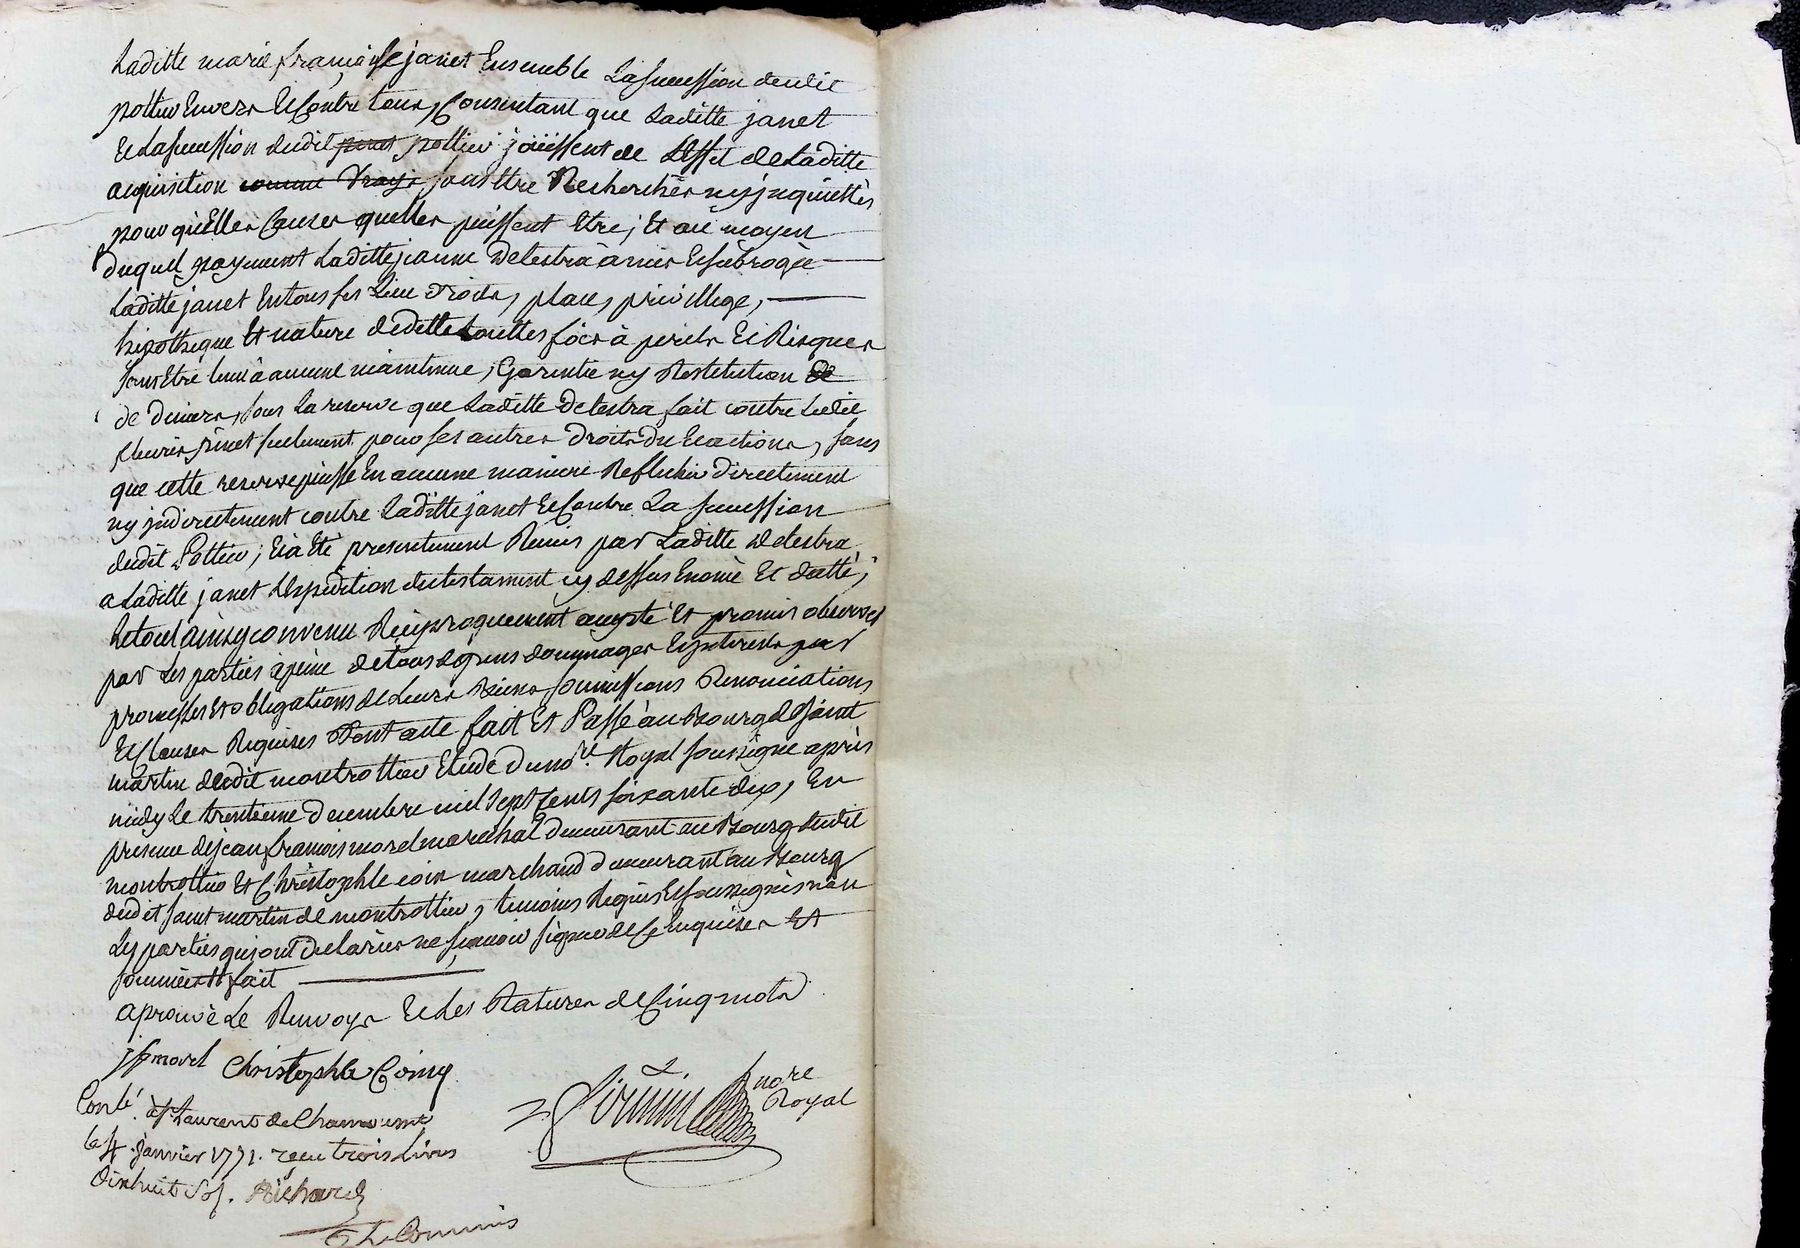 Laditte marie francoise janet Ensemble La succession dudit
pottier Envers Et Contre tous, Consentant que Laditte janet
Et La succession dudit pottier joüissent de L'effet de Laditte
acquisition sans Etre Recherchés ny jnquiettés
pour quelles Causes quelles puissent Etre; Et aü moyen
duquel payement Laditte jeanne Delestra à mis Et sübrogée
Laditte janet En tous ses Lieu droits, place, privillege,
hipotheque Et nature de dette touttes fois à perils Et Risques
sans Etre tenü à aucune maintenue, Garentie ny Restitution
de deniers, sous La reserve que Laditte Delestra fait contre Ledit
fleurie pinet seulement pour ses autres droits du Et actions, sans
que cette reserve püisse En aucune maniere Reflechir directement
ny jndirectement contre Laditte janet Et Contre La succession
dudit Pottier; Et à Eté presentement Remis par Laditte Delestra
a Laditte janet L'Expedition du testament cy dessus Enoncé Et datté;
Le tout ainsy convenu Reciproquement accepté Et promis observer
par Les parties à peine de tous depens dommages Et jnterests par
promesses Et obligations de Leurs Biens, soumissions Renonciations
Et Clauses Requises Dont acte fait Et Passé aü Bourg de Saint
martin dudit montrottier Etude du no.re Royal soussigné après
midy Le trentieme decembre mil sept cents soixante dix, En
presence de jean francois morel marechal demeurant au Bourg dudit
montrottier Et Christophle coin marchand demeurant au Bourg
dudit saint martin de montrottier, temoins Requis Et soussignés non
Les parties qui ont declarées ne scavoir signer de Ce Enquises Et
sommées fait
aprouvé Le Renvoys Et Les Ratures de Cinq mots
jf morel Christophle Coing
firmin no.re Royal
Conlé. à St. Laurent de Chamousset
le 4. janvier 1771. reçu trois livres
dixhuit sol. Richard
Th. Commis